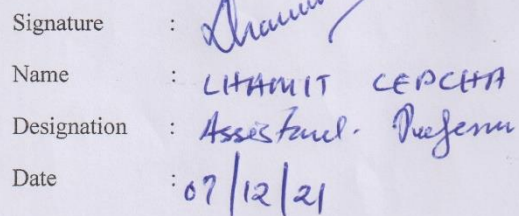 Signature :
Name : LHAMIT LEPCHA
Designation : Assistant. Professor
Date : 07/12/21